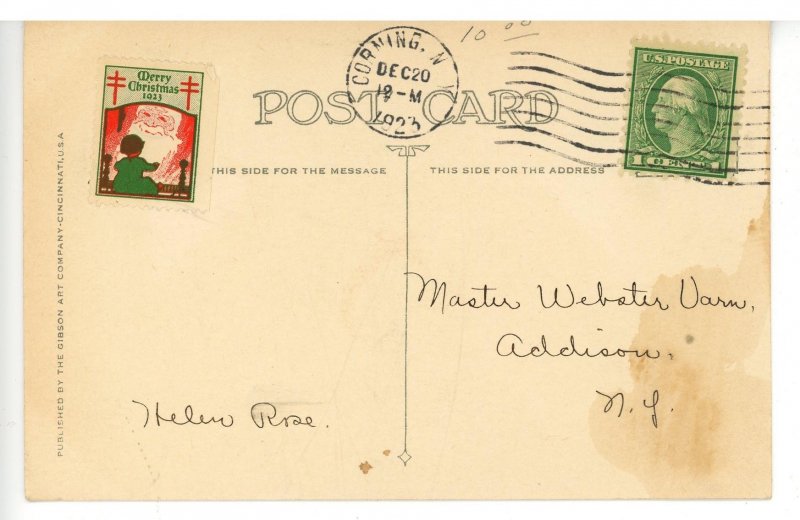 10 00
Merry
Christmas
1923
CORNING, N
DEC 20
12-M
1923
U.S. POSTAGE
1 CENT
POST CARD
THIS SIDE FOR THE MESSAGE
THIS SIDE FOR THE ADDRESS
PUBLISHED BY THE GIBSON ART COMPANY-CINCINNATI, U.S.A
Master Webster Varn,
Addison,
N.Y.
Helen Rose.